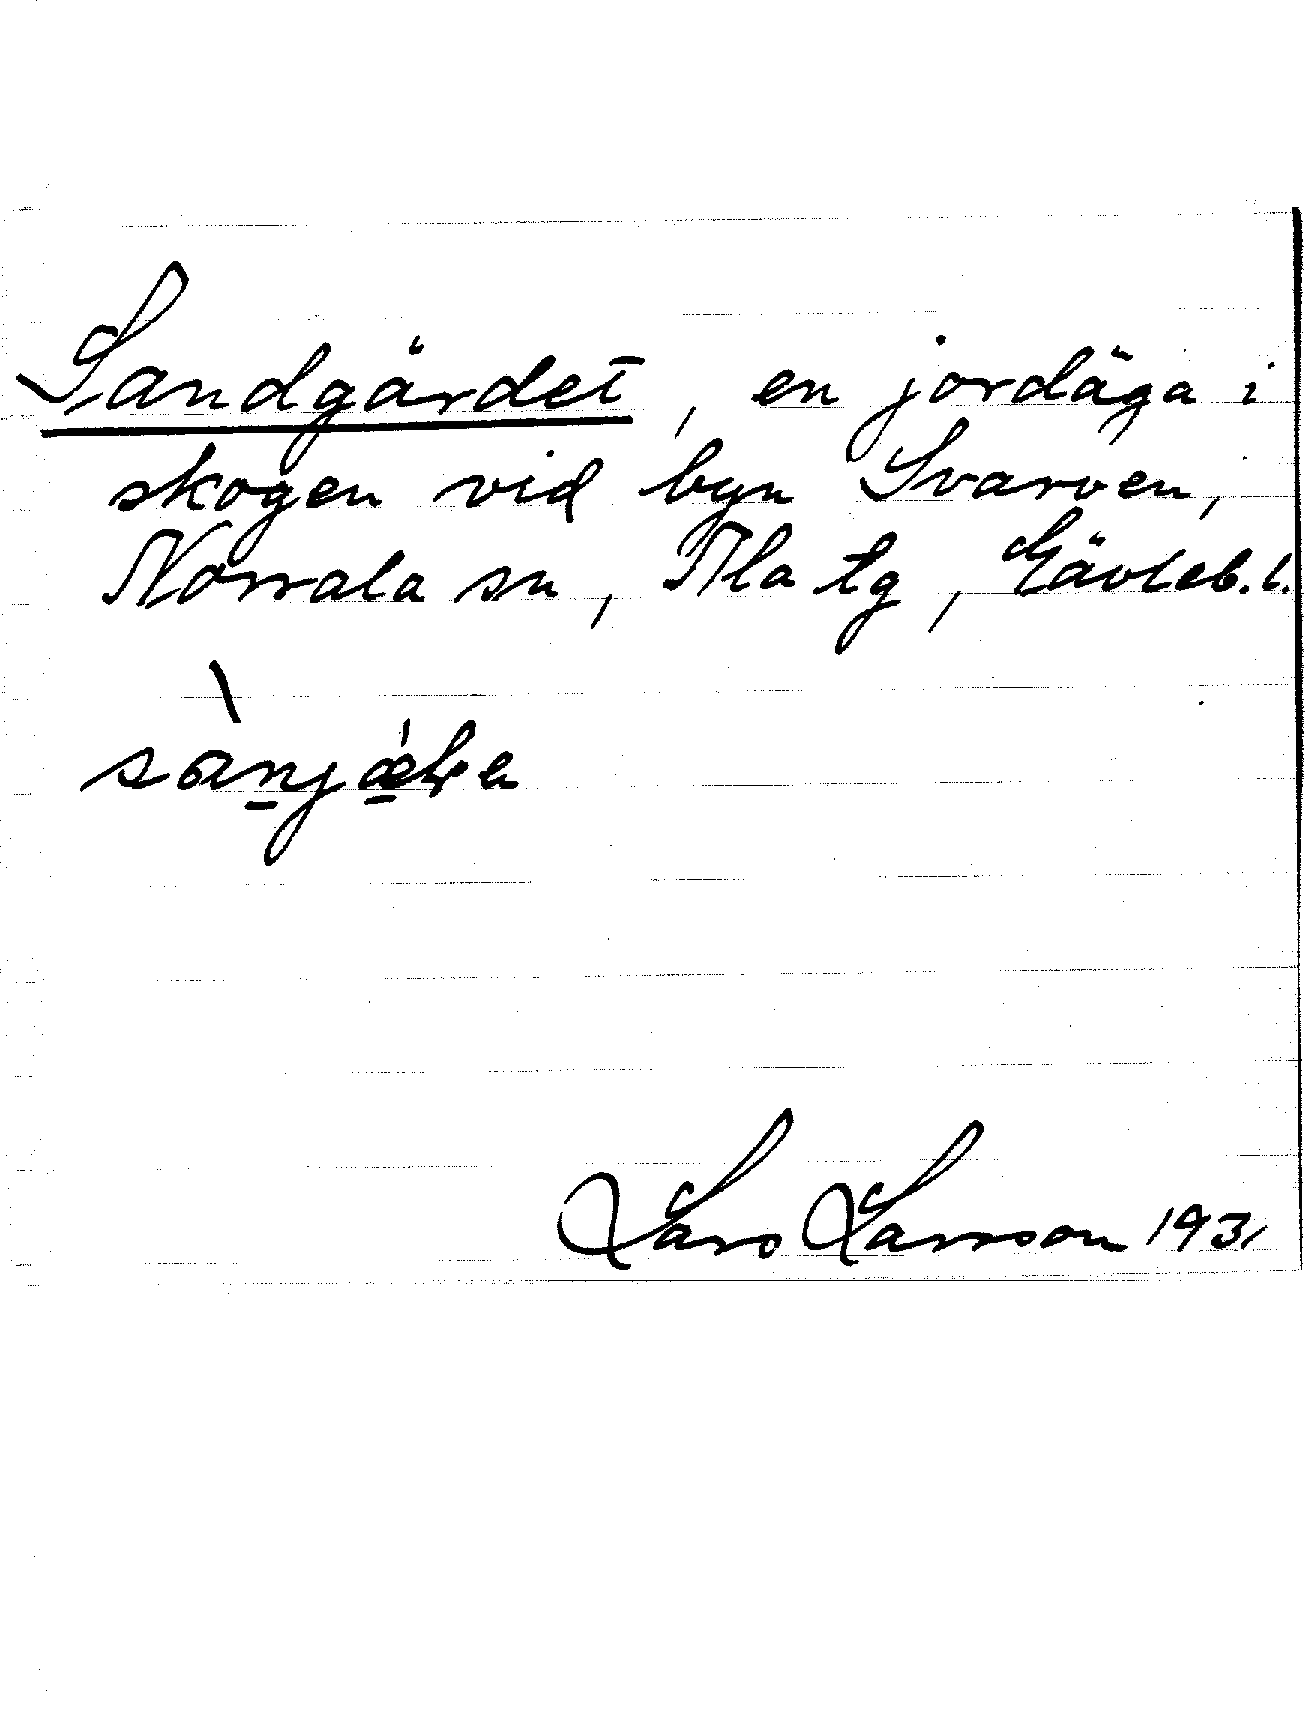 Sandgärdet, en jordäga i
skogen vid byn Svarven,
Norrala sn, Ala tg, Gävleb.l.
Lars Larsson 1931